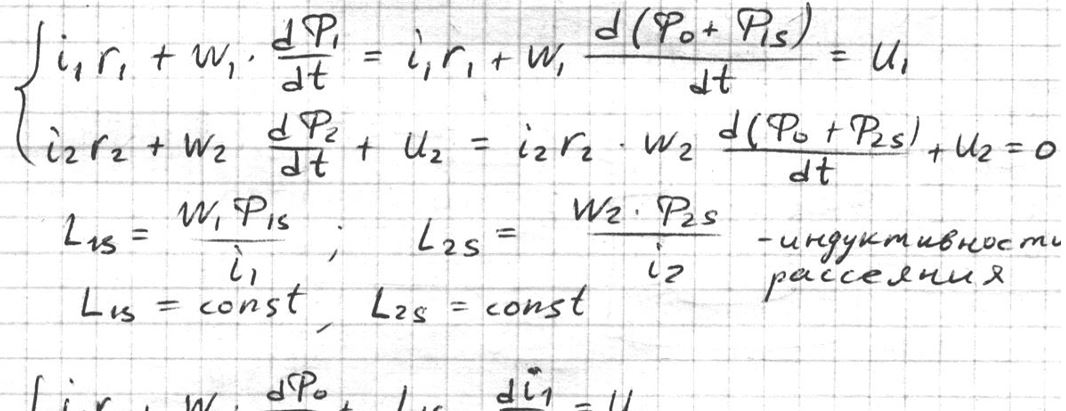 { i₁r₁ + w₁ · dΦ₁/dt = i₁r₁ + w₁ d(Φ₀ + Φ₁s)/dt = U₁
i₂r₂ + w₂ dΦ₂/dt + U₂ = i₂r₂ · w₂ d(Φ₀ + Φ₂s)/dt + U₂ = 0
L₁s = w₁Φ₁s/i₁ ; L₂s = w₂·Φ₂s/i₂ - индуктивности
рассеяния
L₁s = const, L₂s = const
dΦ₀ di₁